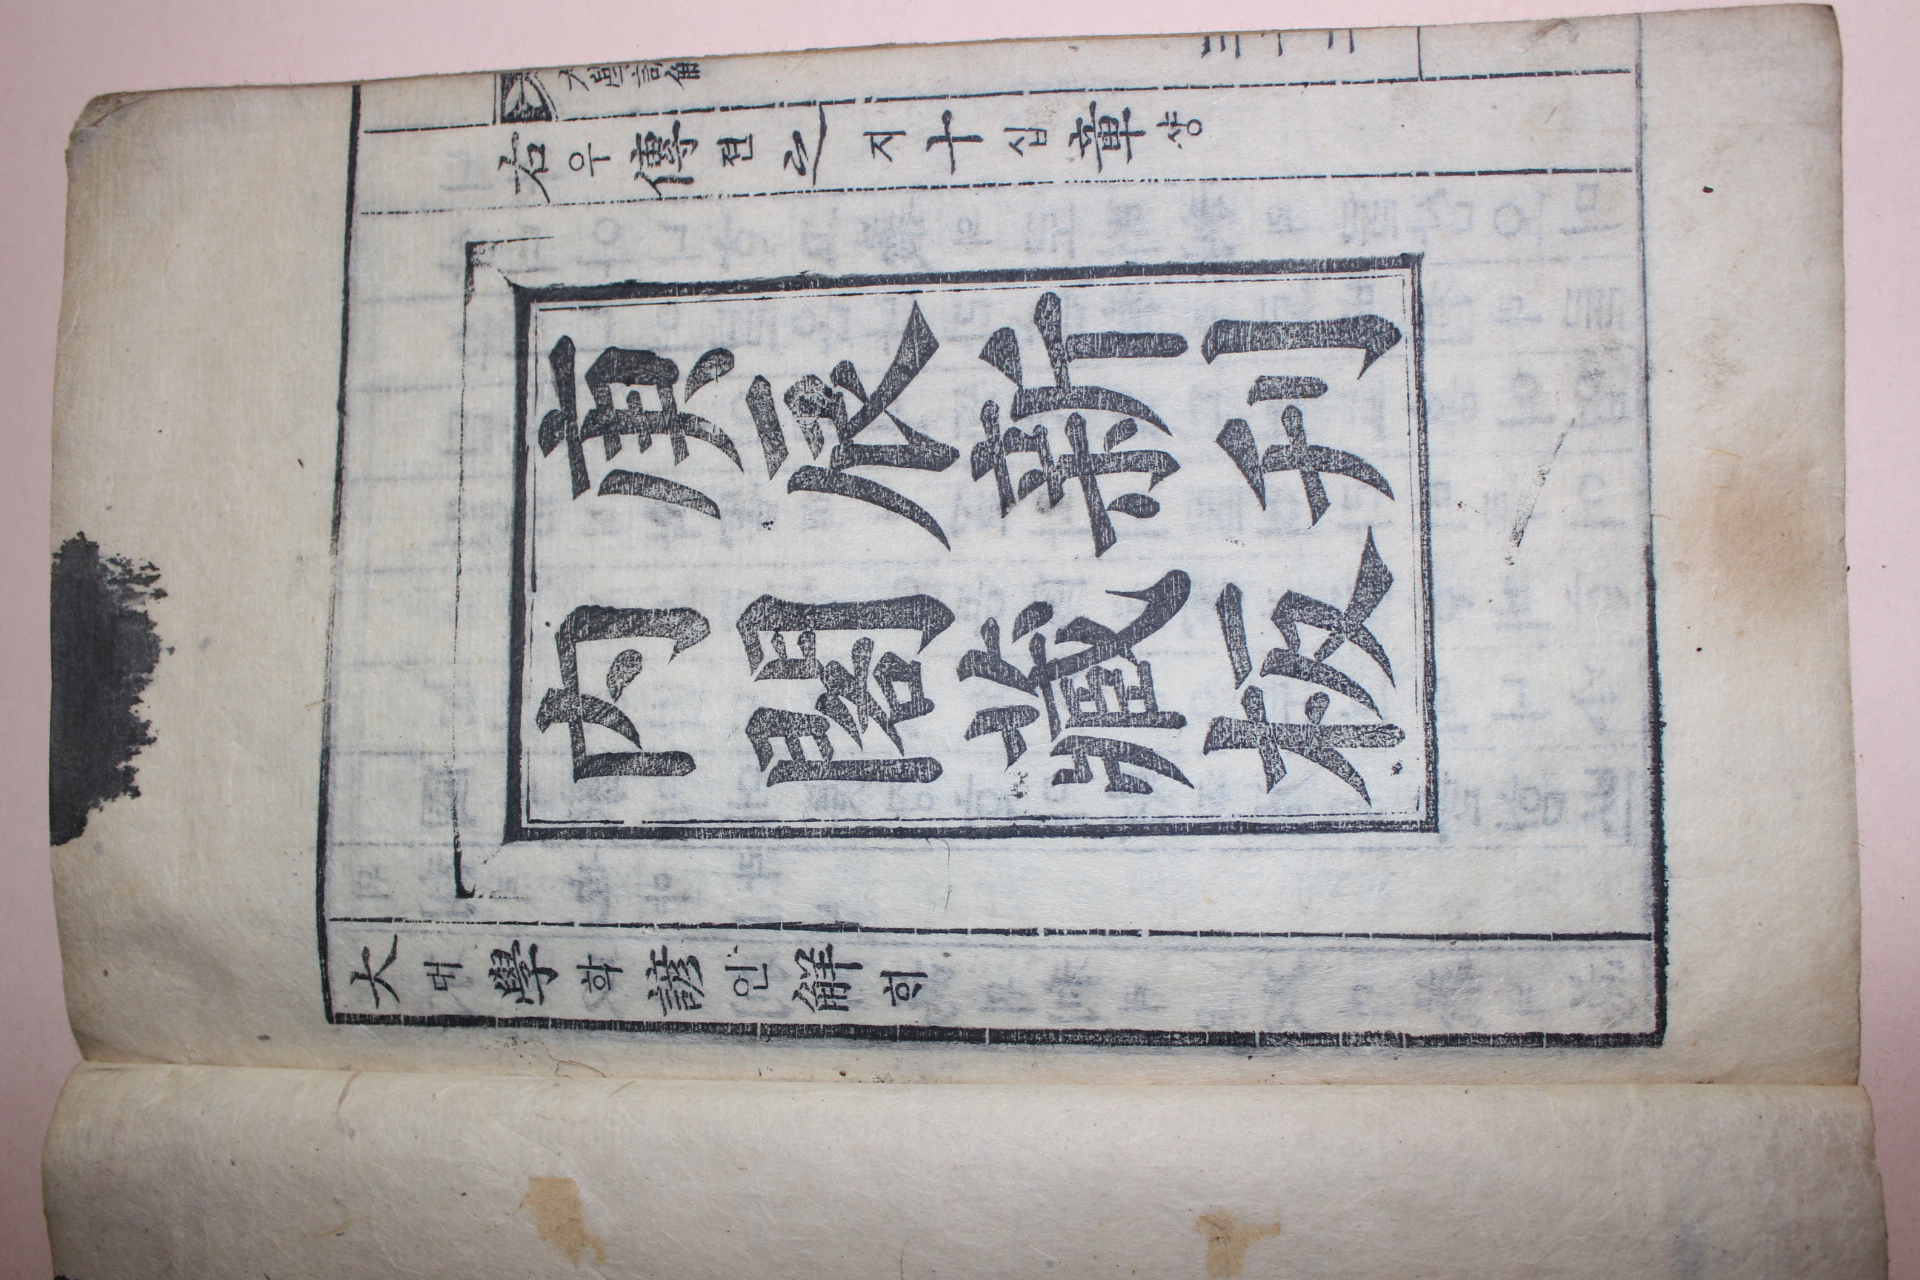 大學諺解
三十二
右우傳젼之지十십章쟝
庚辰新刊
內閣藏板
大대學학諺언解ᄒᆡ